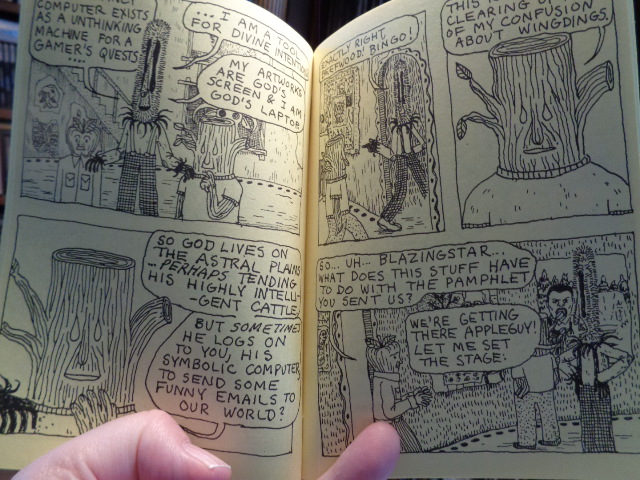 COMPUTER EXISTS
AS AN UNTHINKING
MACHINE FOR A
GAMER'S QUESTS
....
... I AM A TOOL
FOR DIVINE INTENTION
MY ARTWORKS
ARE GOD'S
SCREEN & I AM
GOD'S LAPTOP
SO GOD LIVES ON
THE ASTRAL PLAINS
... PERHAPS TENDING
HIS HIGHLY INTELLI-
-GENT CATTLE,
BUT SOMETIMES
HE LOGS ON
TO YOU, HIS
SYMBOLIC COMPUTER,
TO SEND SOME
FUNNY EMAILS TO
OUR WORLD?
EXACTLY RIGHT,
BINGO!
THIS IS
CLEARING UP
OF MY CONFUSION
ABOUT WINGDINGS.
SO... UH... BLAZINGSTAR...
WHAT DOES THIS STUFF HAVE
TO DO WITH THE PAMPHLET
YOU SENT US?
WE'RE GETTING
THERE APPLEGUY!
LET ME SET
THE STAGE: